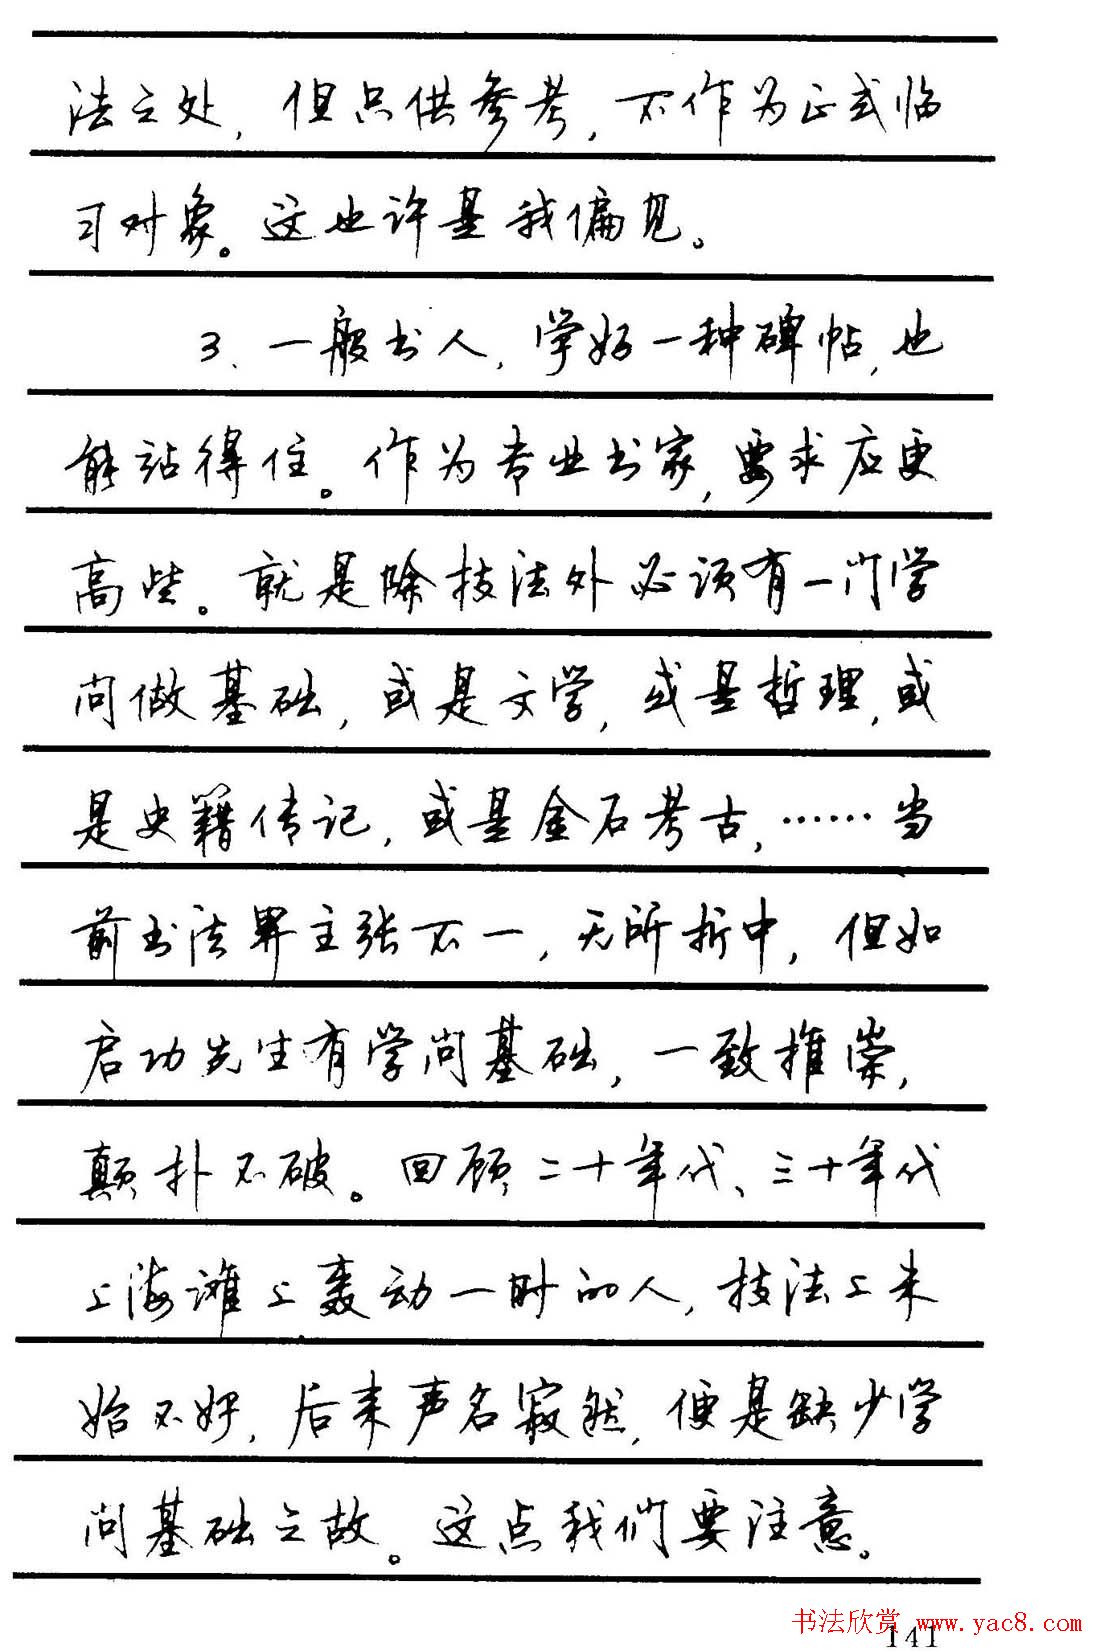 法之处，但只供参考，不作为正式临
习对象。这也许是我偏见。
3、一般书人，学好一种碑帖，也
能站得住。作为专业书家，要求应更
高些。就是除技法外必须有一门学
问做基础，或是文学，或是哲理，或
是史籍传记，或是金石考古，……当
前书法界主张不一，无所折中，但如
启功先生有学问基础，一致推崇，
颠扑不破。回顾二十年代、三十年代
上海滩上轰动一时的人，技法上未
始不好，后来声名寂然，便是缺少学
问基础之故。这点我们要注意。
书法欣赏 www.yac8.com
141